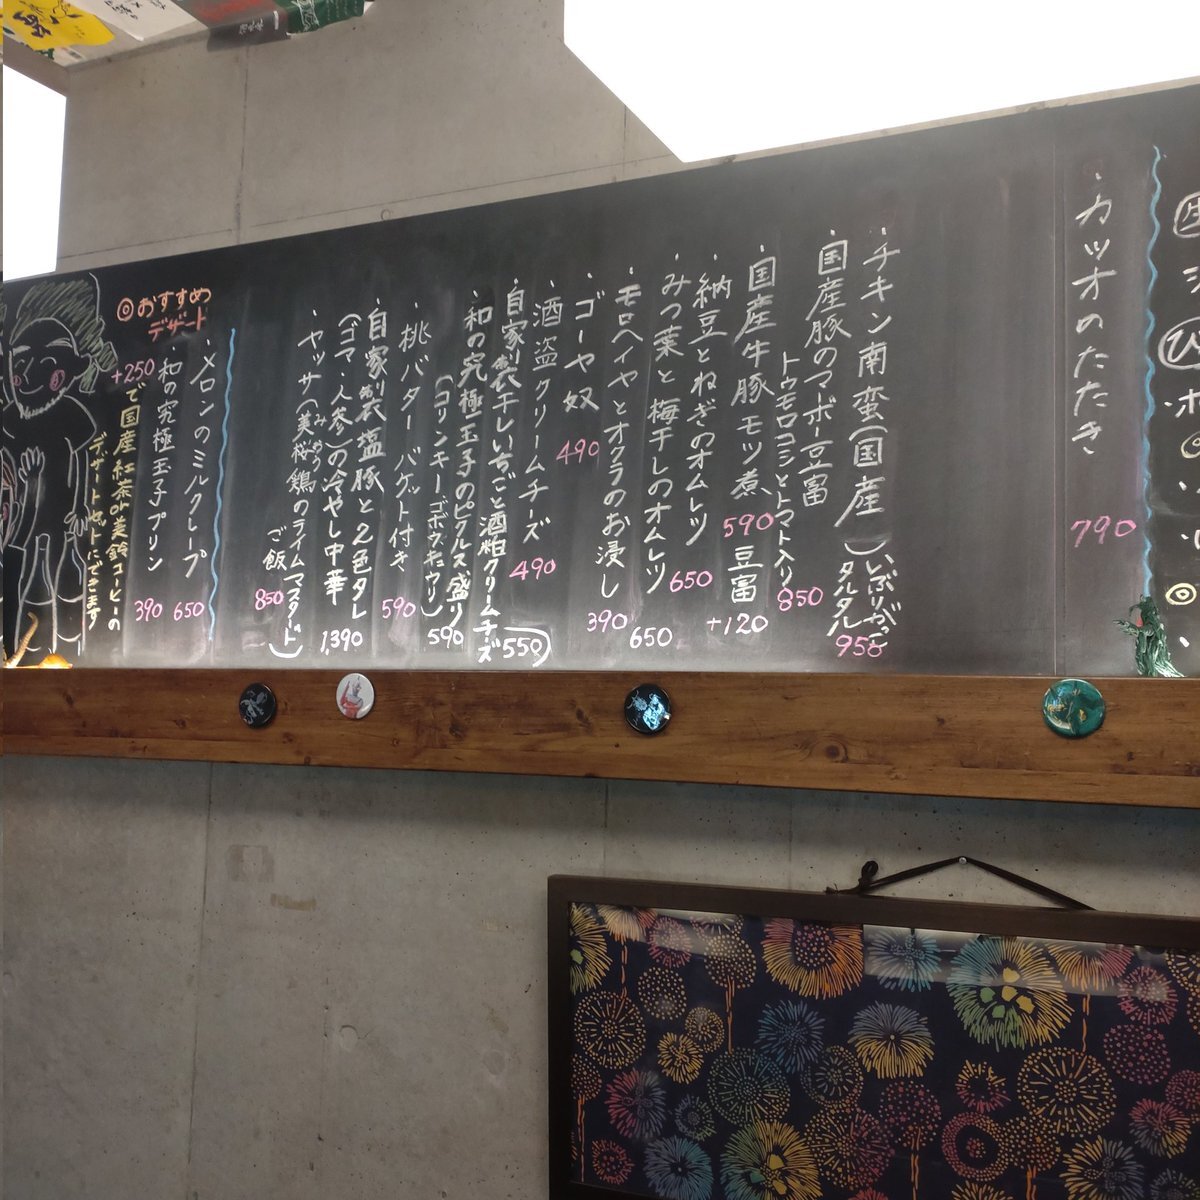 ・カツオのたたき 790
・チキン南蛮(国産)いぶりがっこ
タルタル
958
・国産豚のマーボー豆富
トウモロコシとトマト入り 850
・国産牛豚モツ煮 590 豆富
+120
・納豆とねぎのオムレツ 650
・みつ葉と梅干しのオムレツ 650
・モロヘイヤとオクラのお浸し 390
・ゴーヤ奴 490
・酒盗クリームチーズ 490
・自家製干しいちごと酒粕クリームチーズ 550
・和の究極玉子のピクルス盛り
(コリンキーゴボウきゅうり) 590
・桃バター バゲット付き 590
・自家製塩豚と2色タレ
(ゴマ・人参)の冷やし中華 1,390
・ヤッサ(美桜鶏のライムマスタード)
みおう
ご飯 850
◎おすすめ
デザート
・メロンのミルクレープ 650
・和の究極玉子プリン 390
+250で国産紅茶or美鈴コーヒーの
デザートセットにできます